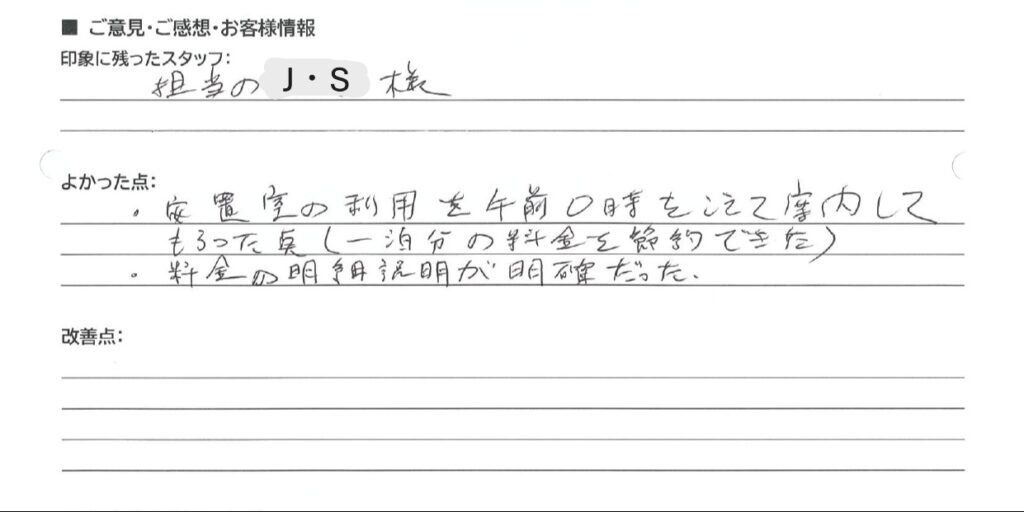 ■ ご意見・ご感想・お客様情報
印象に残ったスタッフ：
担当の J・S 様
よかった点：
・安置室の利用を午前0時をこえて案内して
もらった点（一泊分の料金を節約できた）
・料金の明細説明が明確だった.
改善点：